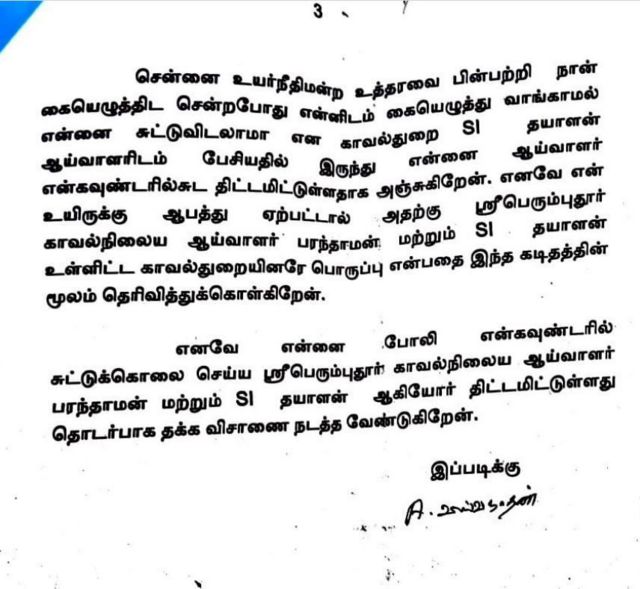 3
சென்னை உயர்நீதிமன்ற உத்தரவை பின்பற்றி நான்
கையெழுத்திட சென்றபோது என்னிடம் கையெழுத்து வாங்காமல்
என்னை சுட்டுவிடலாமா என காவல்துறை SI தயாளன்
ஆய்வாளரிடம் பேசியதில் இருந்து என்னை ஆய்வாளர்
என்கவுண்டரில்சுட திட்டமிட்டுள்ளதாக அஞ்சுகிறேன். எனவே என்
உயிருக்கு ஆபத்து ஏற்பட்டால் அதற்கு ஸ்ரீபெரும்புதூர்
காவல்நிலைய ஆய்வாளர் பரந்தாமன் மற்றும் SI தயாளன்
உள்ளிட்ட காவல்துறையினரே பொருப்பு என்பதை இந்த கடிதத்தின்
மூலம் தெரிவித்துக்கொள்கிறேன்.
எனவே என்னை போலி என்கவுண்டரில்
சுட்டுக்கொலை செய்ய ஸ்ரீபெரும்புதூர் காவல்நிலைய ஆய்வாளர்
பரந்தாமன் மற்றும் SI தயாளன் ஆகியோர் திட்டமிட்டுள்ளது
தொடர்பாக தக்க விசாணை நடத்த வேண்டுகிறேன்.
இப்படிக்கு
A.